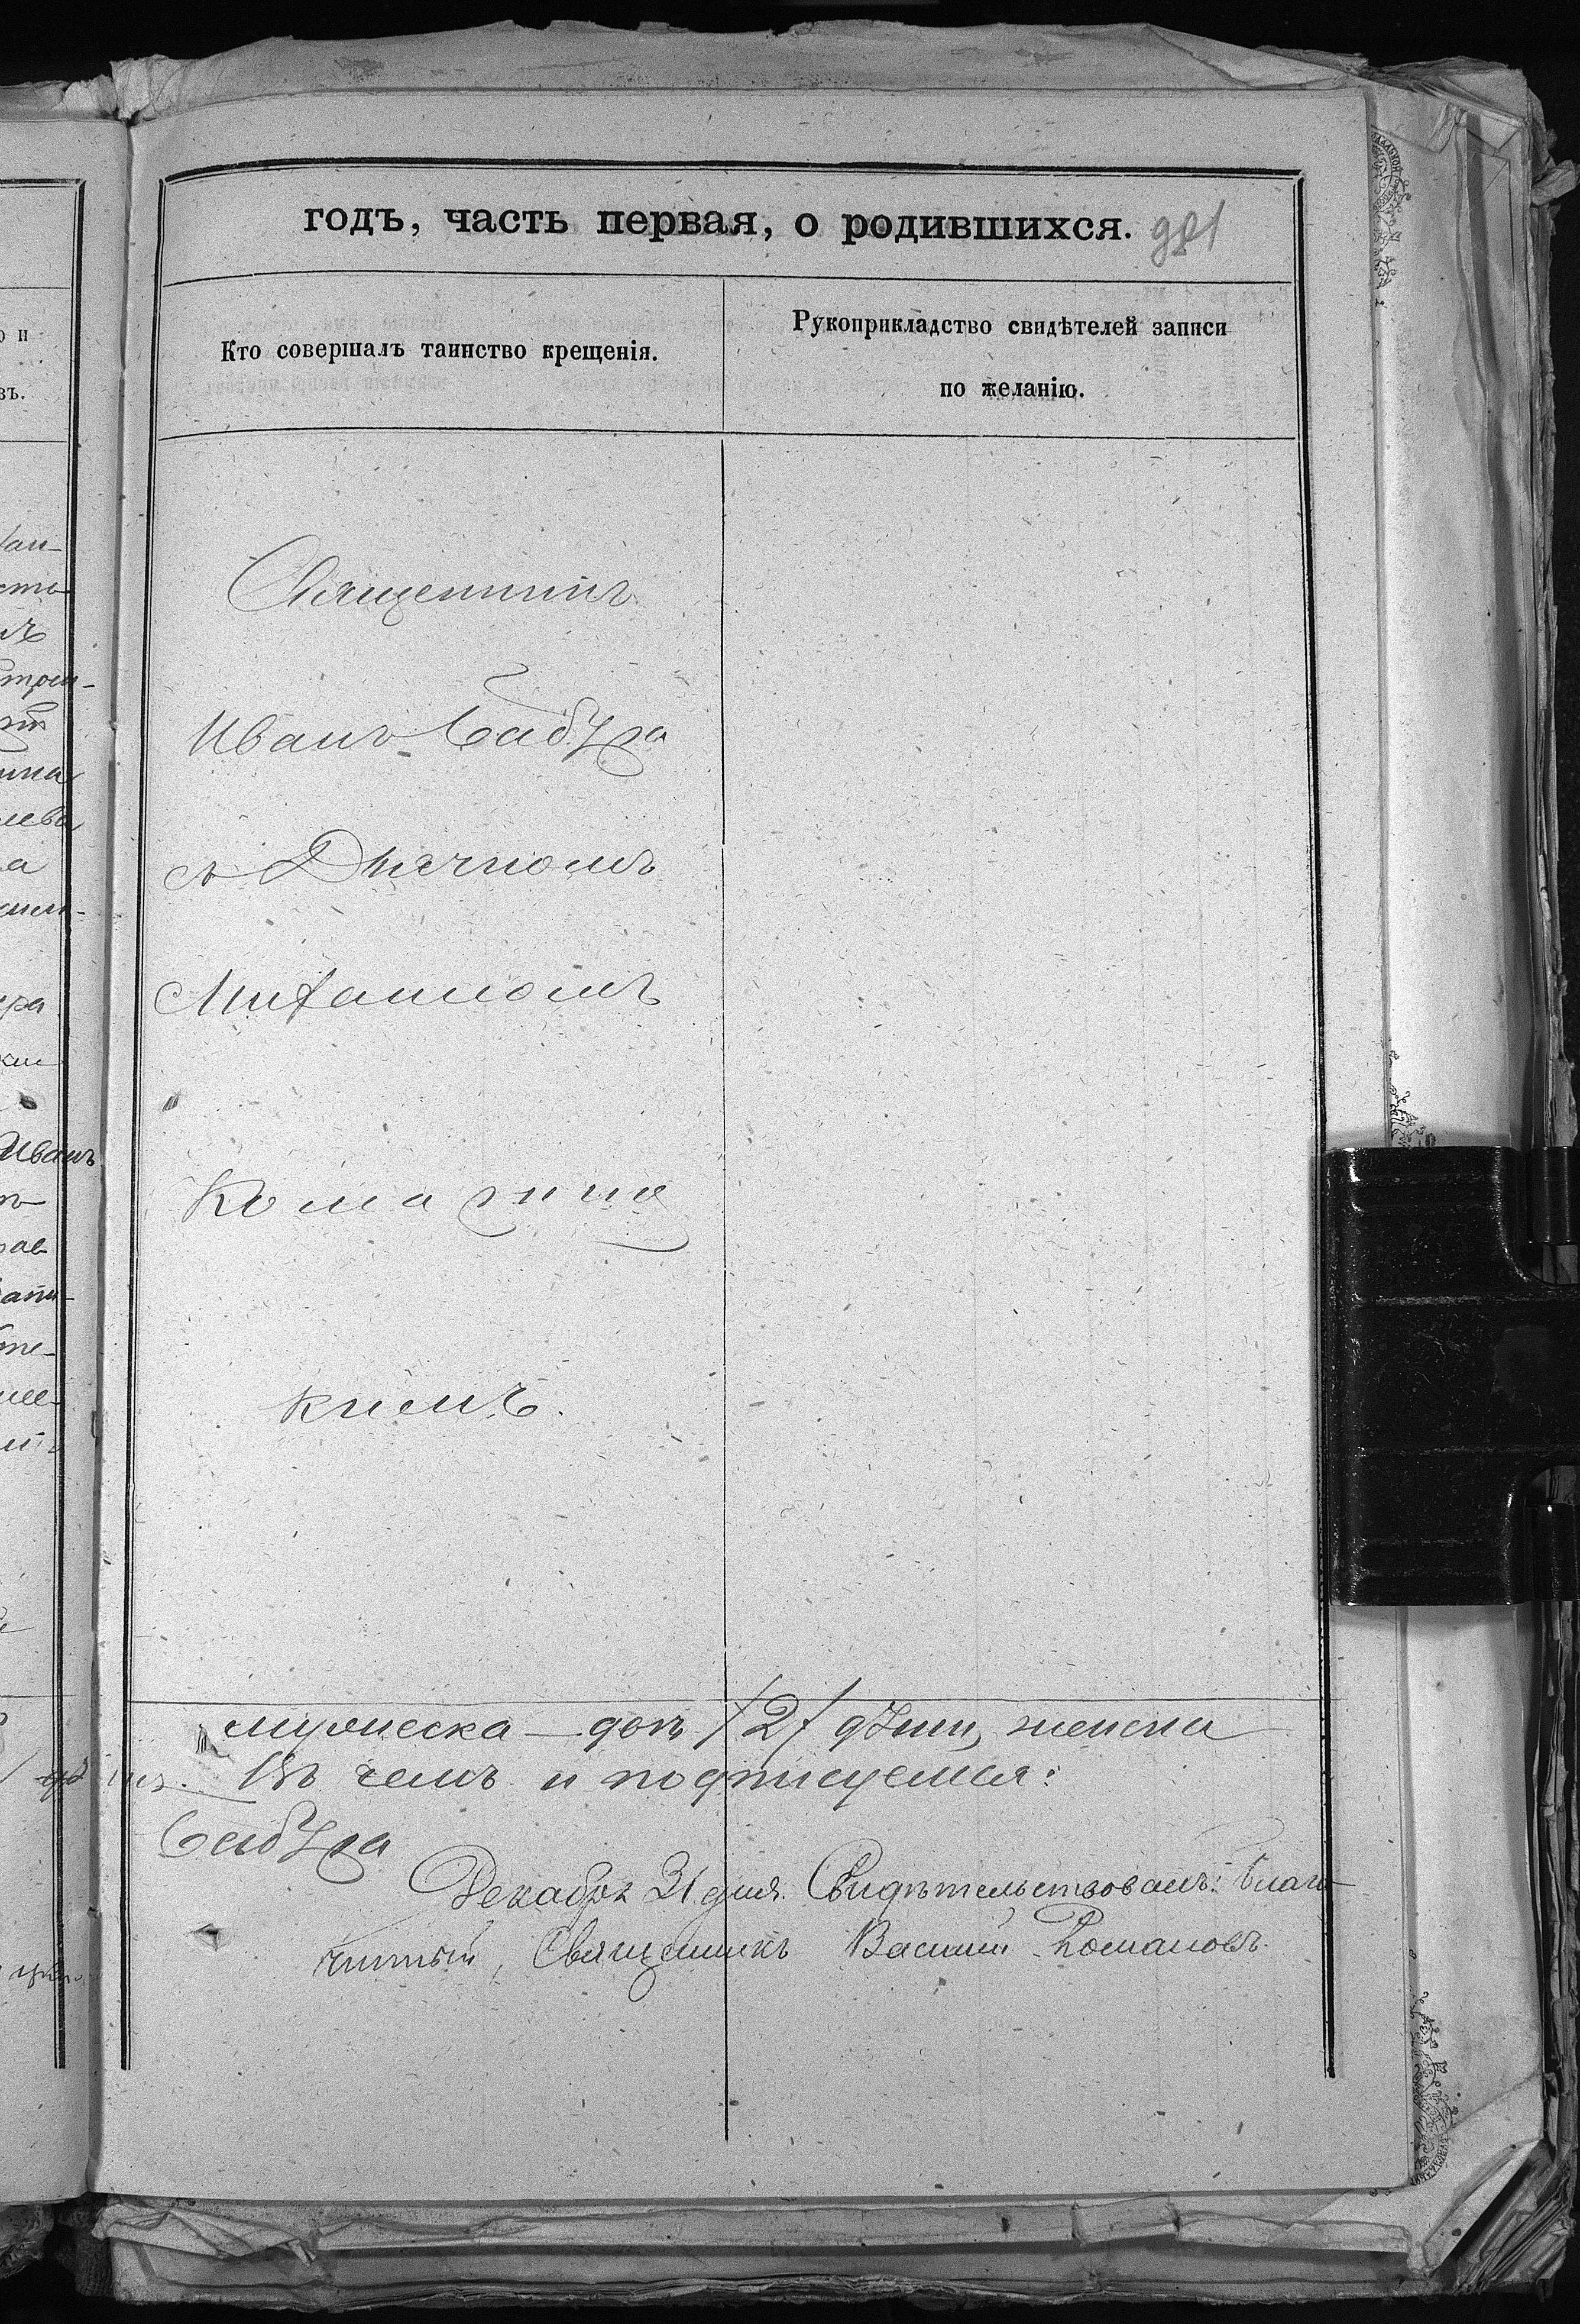 годъ, часть первая, о родившихся.
Кто совершалъ таинство крещенія.
Рукоприкладство свидѣтелей записи
по желанію.
Священникъ
Иванъ Бабура
съ Дьячкомъ
Михаиломъ
Комарниц
кимъ.
мужеска 
Въ чемъ и подписуемся:
Бабура
Декабря 31 дня. Свидѣтельствовалъ: Благо-
чинный, Священникъ Василій Романовъ.